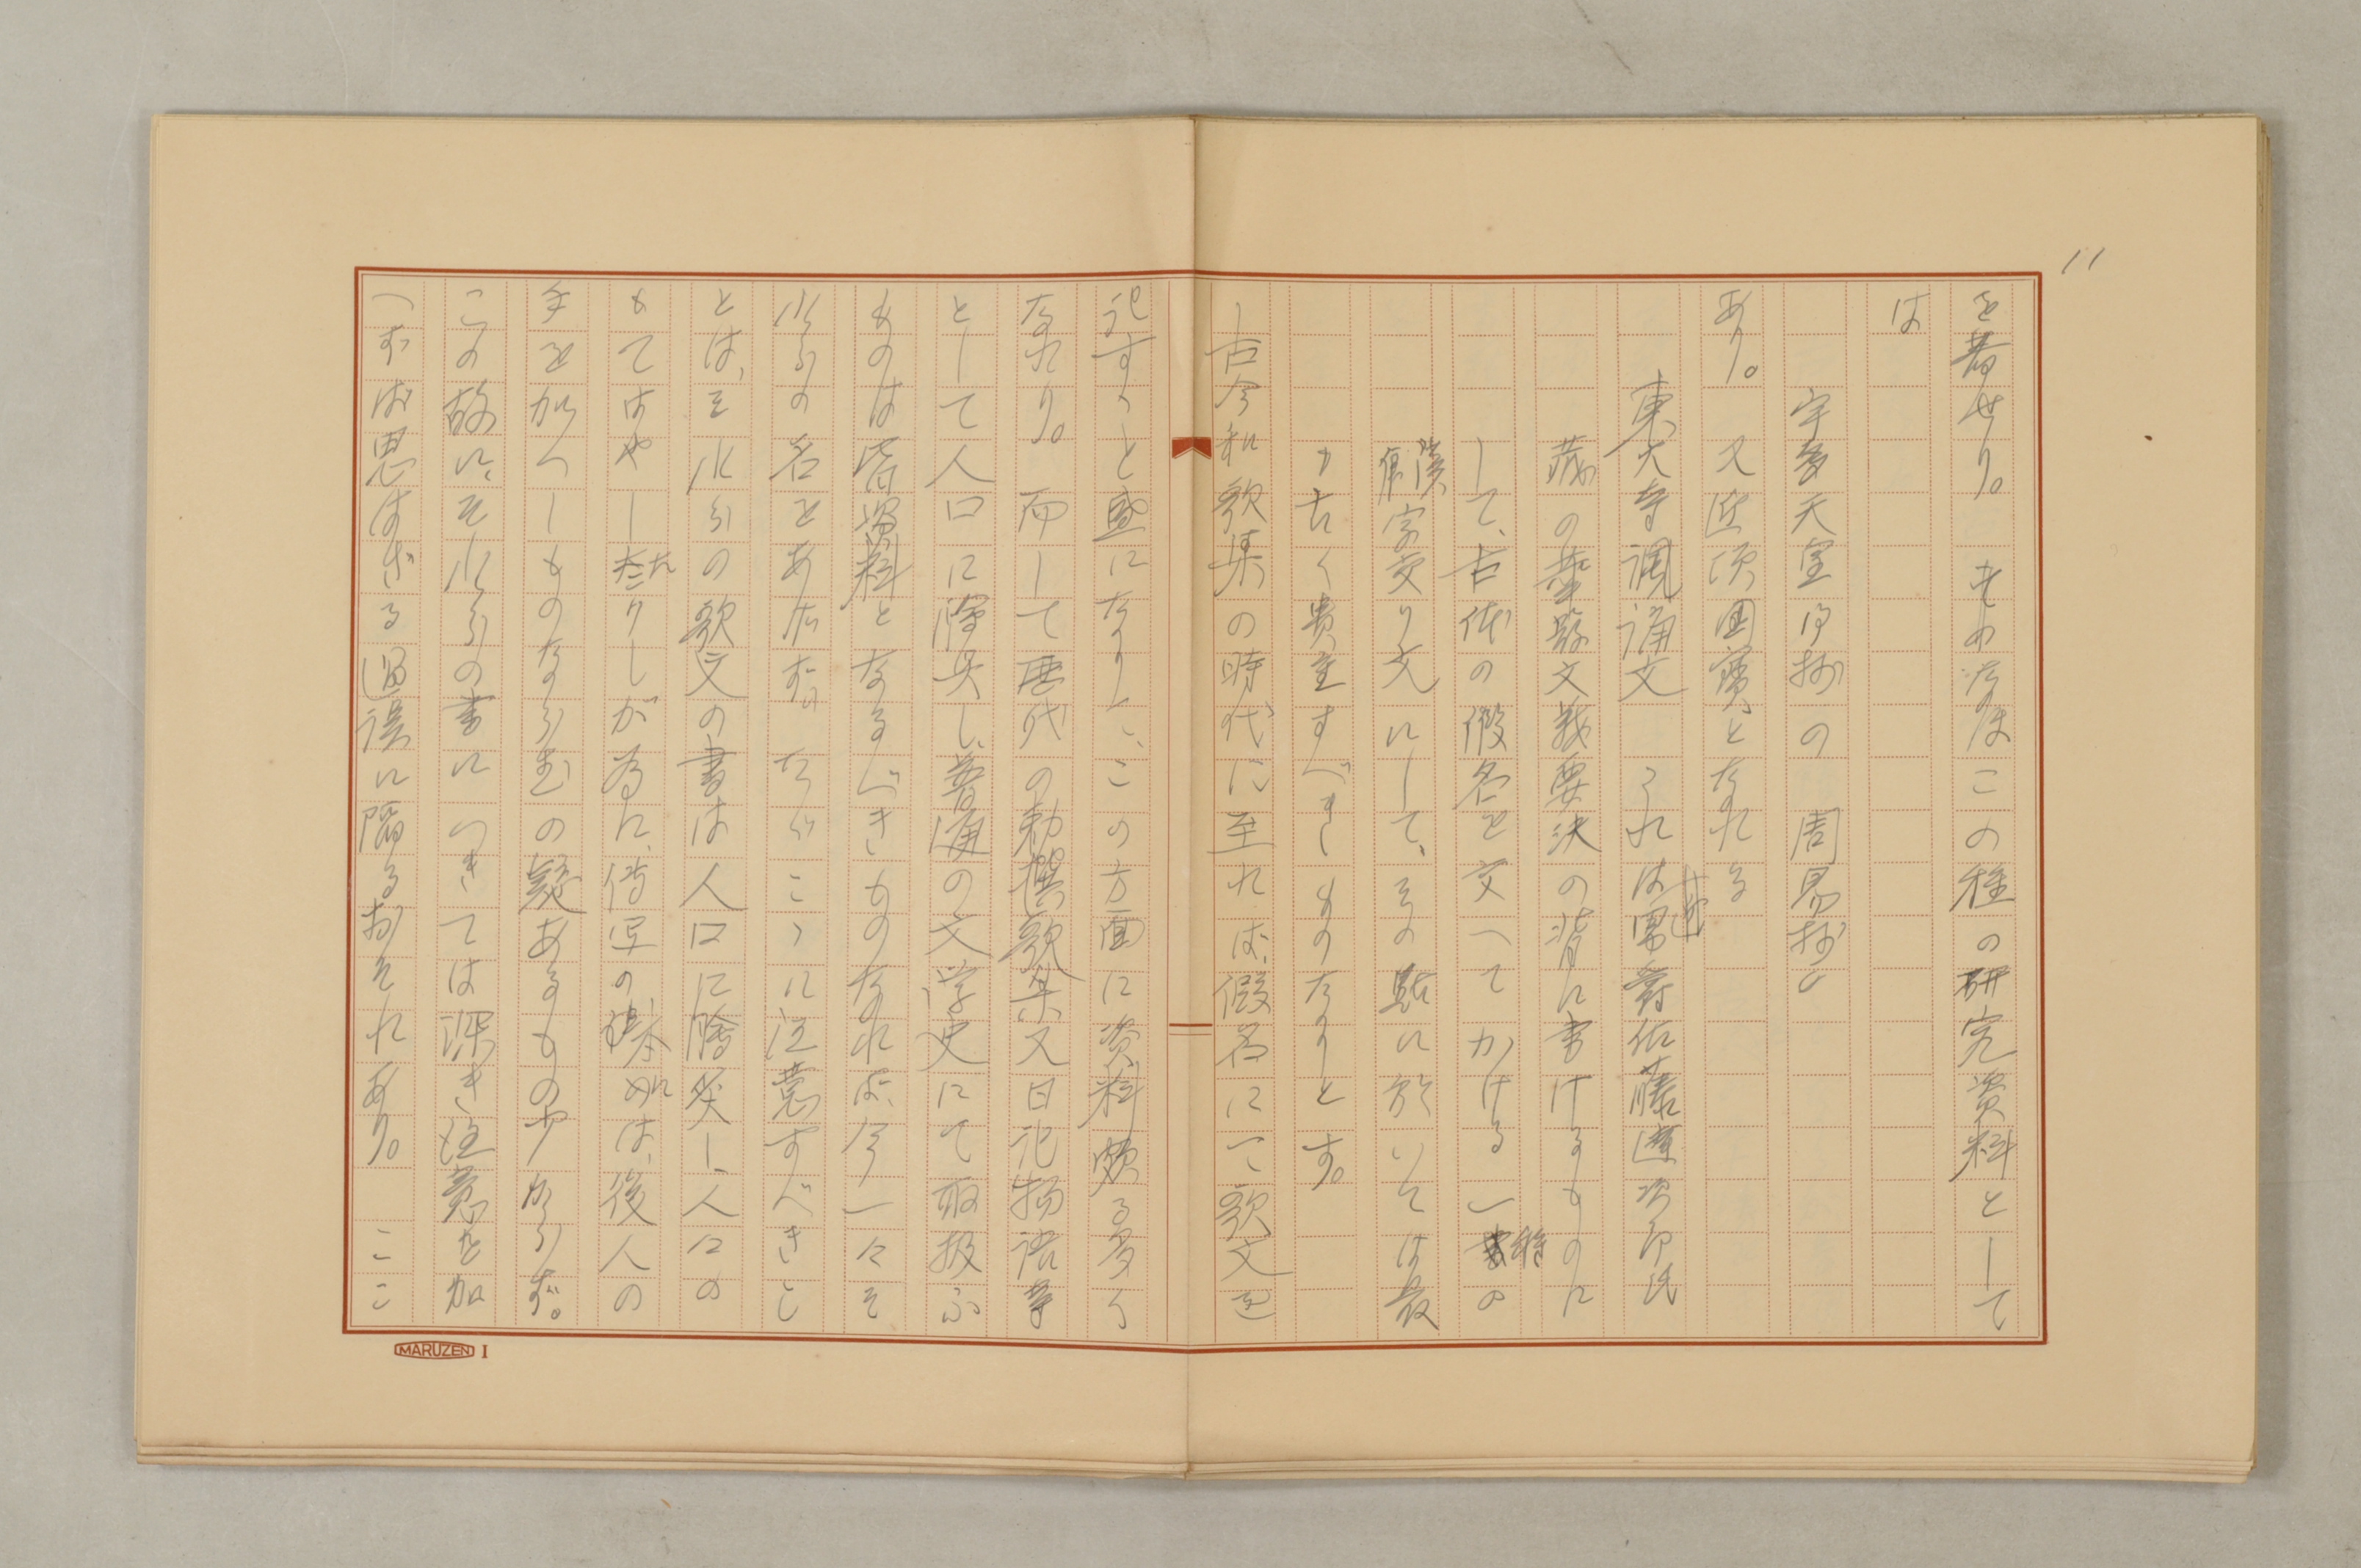 11
を著せり。 そのなほこの種の研究資料として
は
宇多天皇宸翰の 周易抄
あり。 又近頃国宝となれる
東大寺諷誦文 これは男爵佐藤達次郎氏
蔵の華厳文義要決の背に書けるものに
して、古体の假名を交へてかける一種の
漢字交り文にして、その點に於いては最
も古く貴重すべきものなりとす。
古今和歌集の時代に至れば、假名にて歌文を
記すこと盛になりし、この方面に資料頗る多く
なれり。 而して歴代の勅撰歌集又日記物語等
として人口に膾炙し、普通の文学史にて取扱ふ
ものは皆資料となるべきものなれば、今一々そ
れらの名をあげず。 たゞこゝに注意すべきこ
とは、それらの歌文の書は人口に膾炙し、人口の
もてはやしたりしが為に、傳写の際には、後人の
手を加へしものならむの疑あるもの少からず。
この故に、それらの書につきては深き注意を加
へずば思はざる過誤に陥るおそれあり。 ここ
MARUZEN I